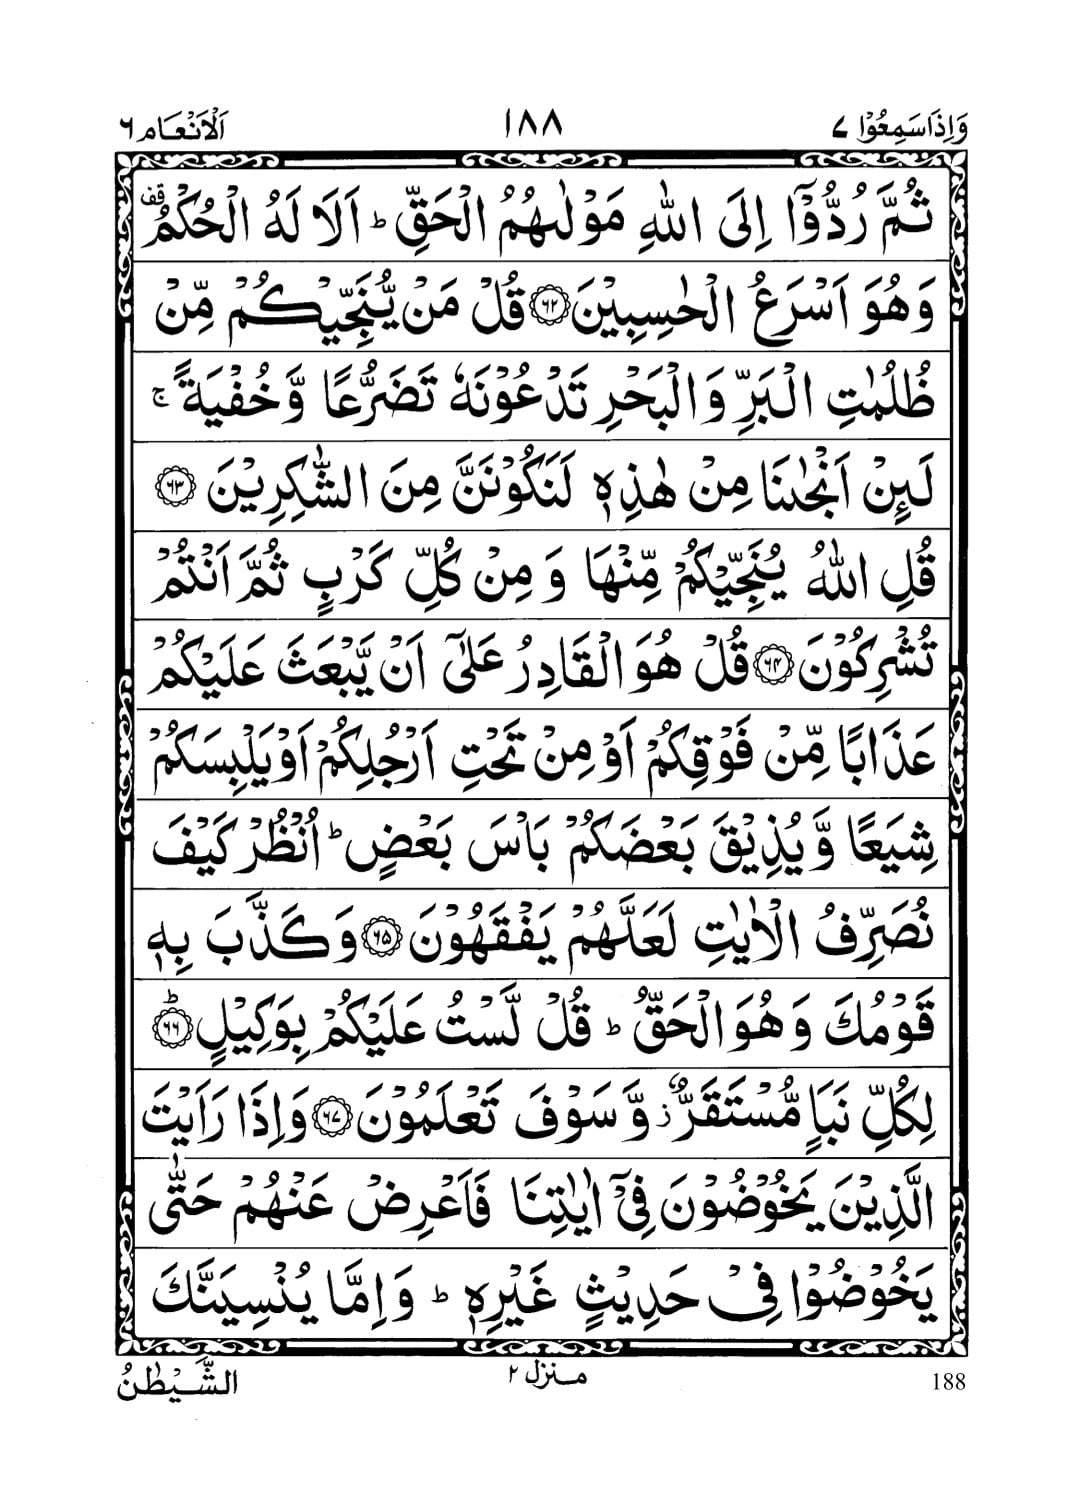 وَاِذَا سَمِعُوْا ٧ ١٨٨ اَلْاَنْعَام ٦
ثُمَّ رُدُّوْۤا اِلَى اللّٰهِ مَوْلٰىهُمُ الْحَقِّ ؕ اَلَا لَهُ الْحُكْمُ قف
وَهُوَ اَسْرَعُ الْحٰسِبِيْنَ ﴿۶۲﴾ قُلْ مَنْ يُّنَجِّيْكُمْ مِّنْ
ظُلُمٰتِ الْبَرِّ وَالْبَحْرِ تَدْعُوْنَهٗ تَضَرُّعًا وَّخُفْيَةً ۚ
لَئِنْ اَنْجٰىنَا مِنْ هٰذِهٖ لَنَكُوْنَنَّ مِنَ الشّٰكِرِيْنَ ﴿۶۳﴾
قُلِ اللّٰهُ يُنَجِّيْكُمْ مِّنْهَا وَمِنْ كُلِّ كَرْبٍ ثُمَّ اَنْتُمْ
تُشْرِكُوْنَ ﴿۶۴﴾ قُلْ هُوَ الْقَادِرُ عَلٰۤى اَنْ يَّبْعَثَ عَلَيْكُمْ
عَذَابًا مِّنْ فَوْقِكُمْ اَوْ مِنْ تَحْتِ اَرْجُلِكُمْ اَوْ يَلْبِسَكُمْ
شِيَعًا وَّيُذِيْقَ بَعْضَكُمْ بَاْسَ بَعْضٍ ؕ اُنْظُرْ كَيْفَ
نُصَرِّفُ الْاٰيٰتِ لَعَلَّهُمْ يَفْقَهُوْنَ ﴿۶۵﴾ وَكَذَّبَ بِهٖ
قَوْمُكَ وَهُوَ الْحَقُّ ؕ قُلْ لَّسْتُ عَلَيْكُمْ بِوَكِيْلٍ ؕ ﴿۶۶﴾
لِكُلِّ نَبَاٍ مُّسْتَقَرٌّ ز وَّسَوْفَ تَعْلَمُوْنَ ﴿۶۷﴾ وَاِذَا رَاَيْتَ
الَّذِيْنَ يَخُوْضُوْنَ فِيْۤ اٰيٰتِنَا فَاَعْرِضْ عَنْهُمْ حَتّٰى
يَخُوْضُوْا فِيْ حَدِيْثٍ غَيْرِهٖ ؕ وَاِمَّا يُنْسِيَنَّكَ
188 منزل ٢ الشَّيْطٰنُ